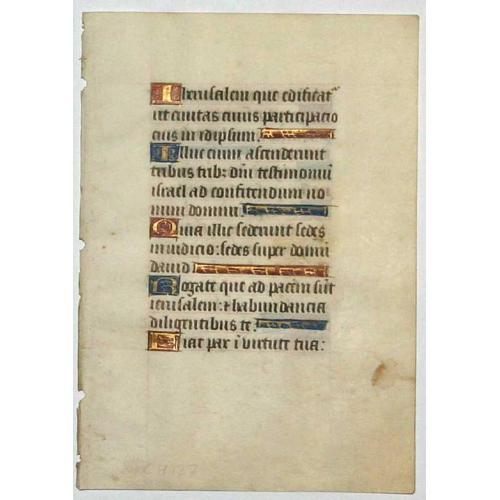 Iherusalem que edificat
ut civitas cuius participacio
eius in idipsum.
Illuc enim ascenderunt
tribus trib: dñi testimoniũ
israel ad confitendum no
mini domini.
Quia illic sederunt sedes
in iudicio: sedes super domũ
david
Rogate que ad pacem sũt
ierusalem: & habundancia
diligentibus te.
Fiat pax ĩ virtute tua: